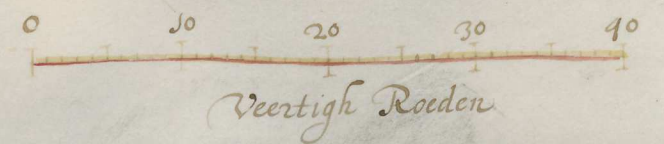 0 10 20 30 40
Veertigh Roeden